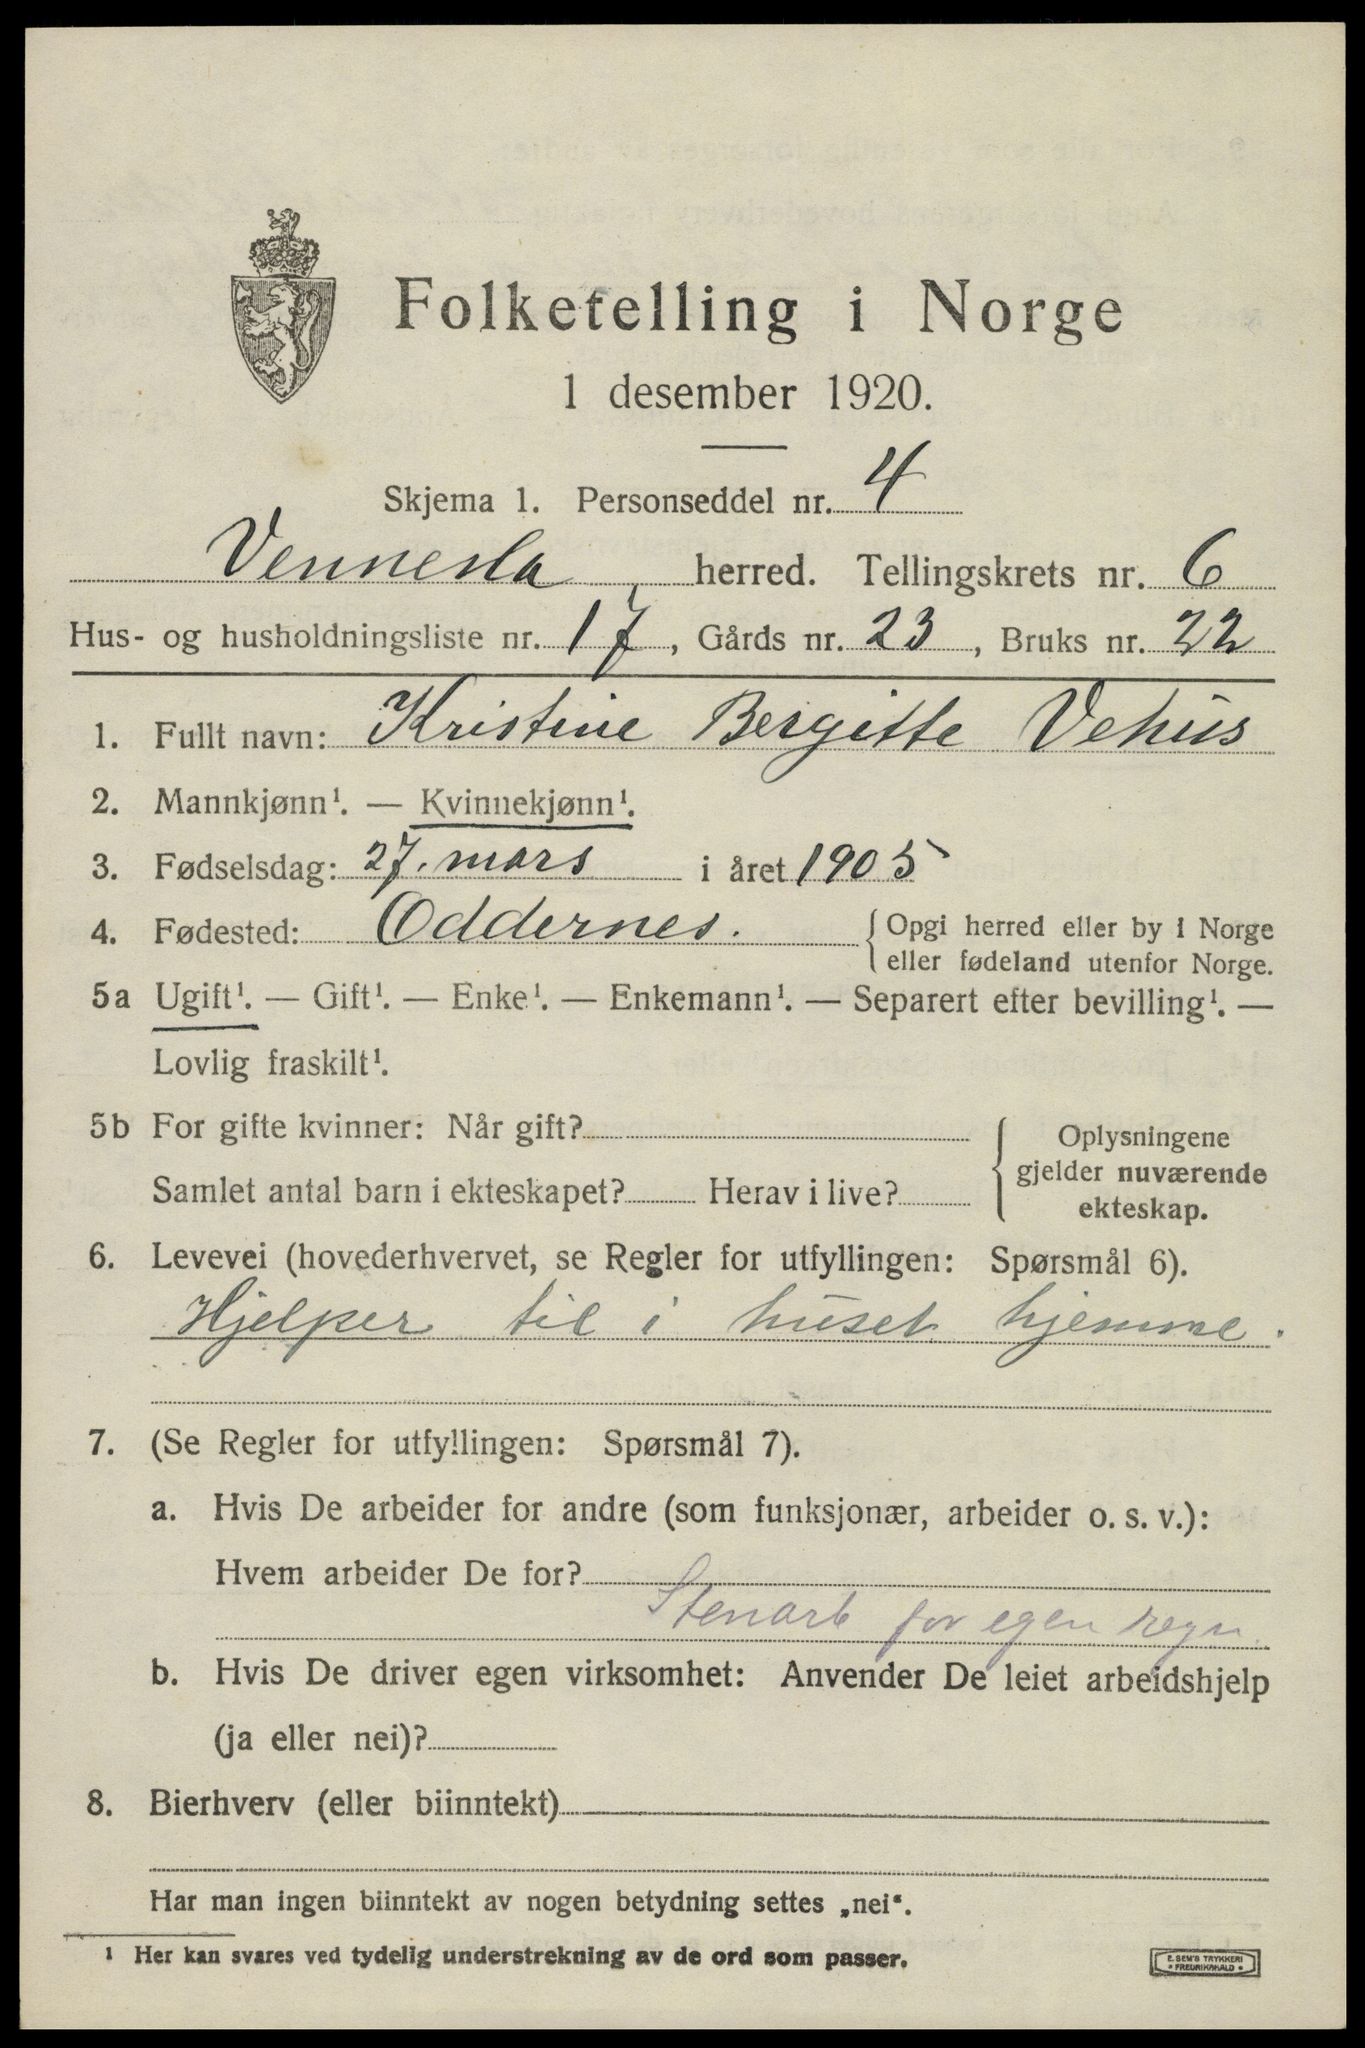 Folketelling i Norge
1 desember 1920.
Skjema 1. Personseddel nr. 4
Vennesla herred. Tellingskrets nr. 6
Hus- og husholdningsliste nr. 17, Gårds nr. 23, Bruks nr. 22
1. Fullt navn: Kristine Bergitte Vehus
2. Mannkjønn¹. — Kvinnekjønn¹.
3. Fødselsdag: 27. mars i året 1905
4. Fødested: Oddernes. { Opgi herred eller by i Norge
eller fødeland utenfor Norge.
5a Ugift¹. — Gift¹. — Enke¹. — Enkemann¹. — Separert efter bevilling¹. —
Lovlig fraskilt¹.
5b For gifte kvinner: Når gift?
Samlet antal barn i ekteskapet? Herav i live?
{ Oplysningene
gjelder nuværende
ekteskap.
6. Levevei (hovederhvervet, se Regler for utfyllingen: Spørsmål 6).
Hjelper til i huset hjemme.
7. (Se Regler for utfyllingen: Spørsmål 7).
a. Hvis De arbeider for andre (som funksjonær, arbeider o. s. v.):
Hvem arbeider De for?
Stenarb for egen regn.
b. Hvis De driver egen virksomhet: Anvender De leiet arbeidshjelp
(ja eller nei)?
8. Bierhverv (eller biinntekt)
Har man ingen biinntekt av nogen betydning settes „nei“.
¹ Her kan svares ved tydelig understrekning av de ord som passer.
E. SEM'S TRYKKERI
• FREDRIKSHALD •